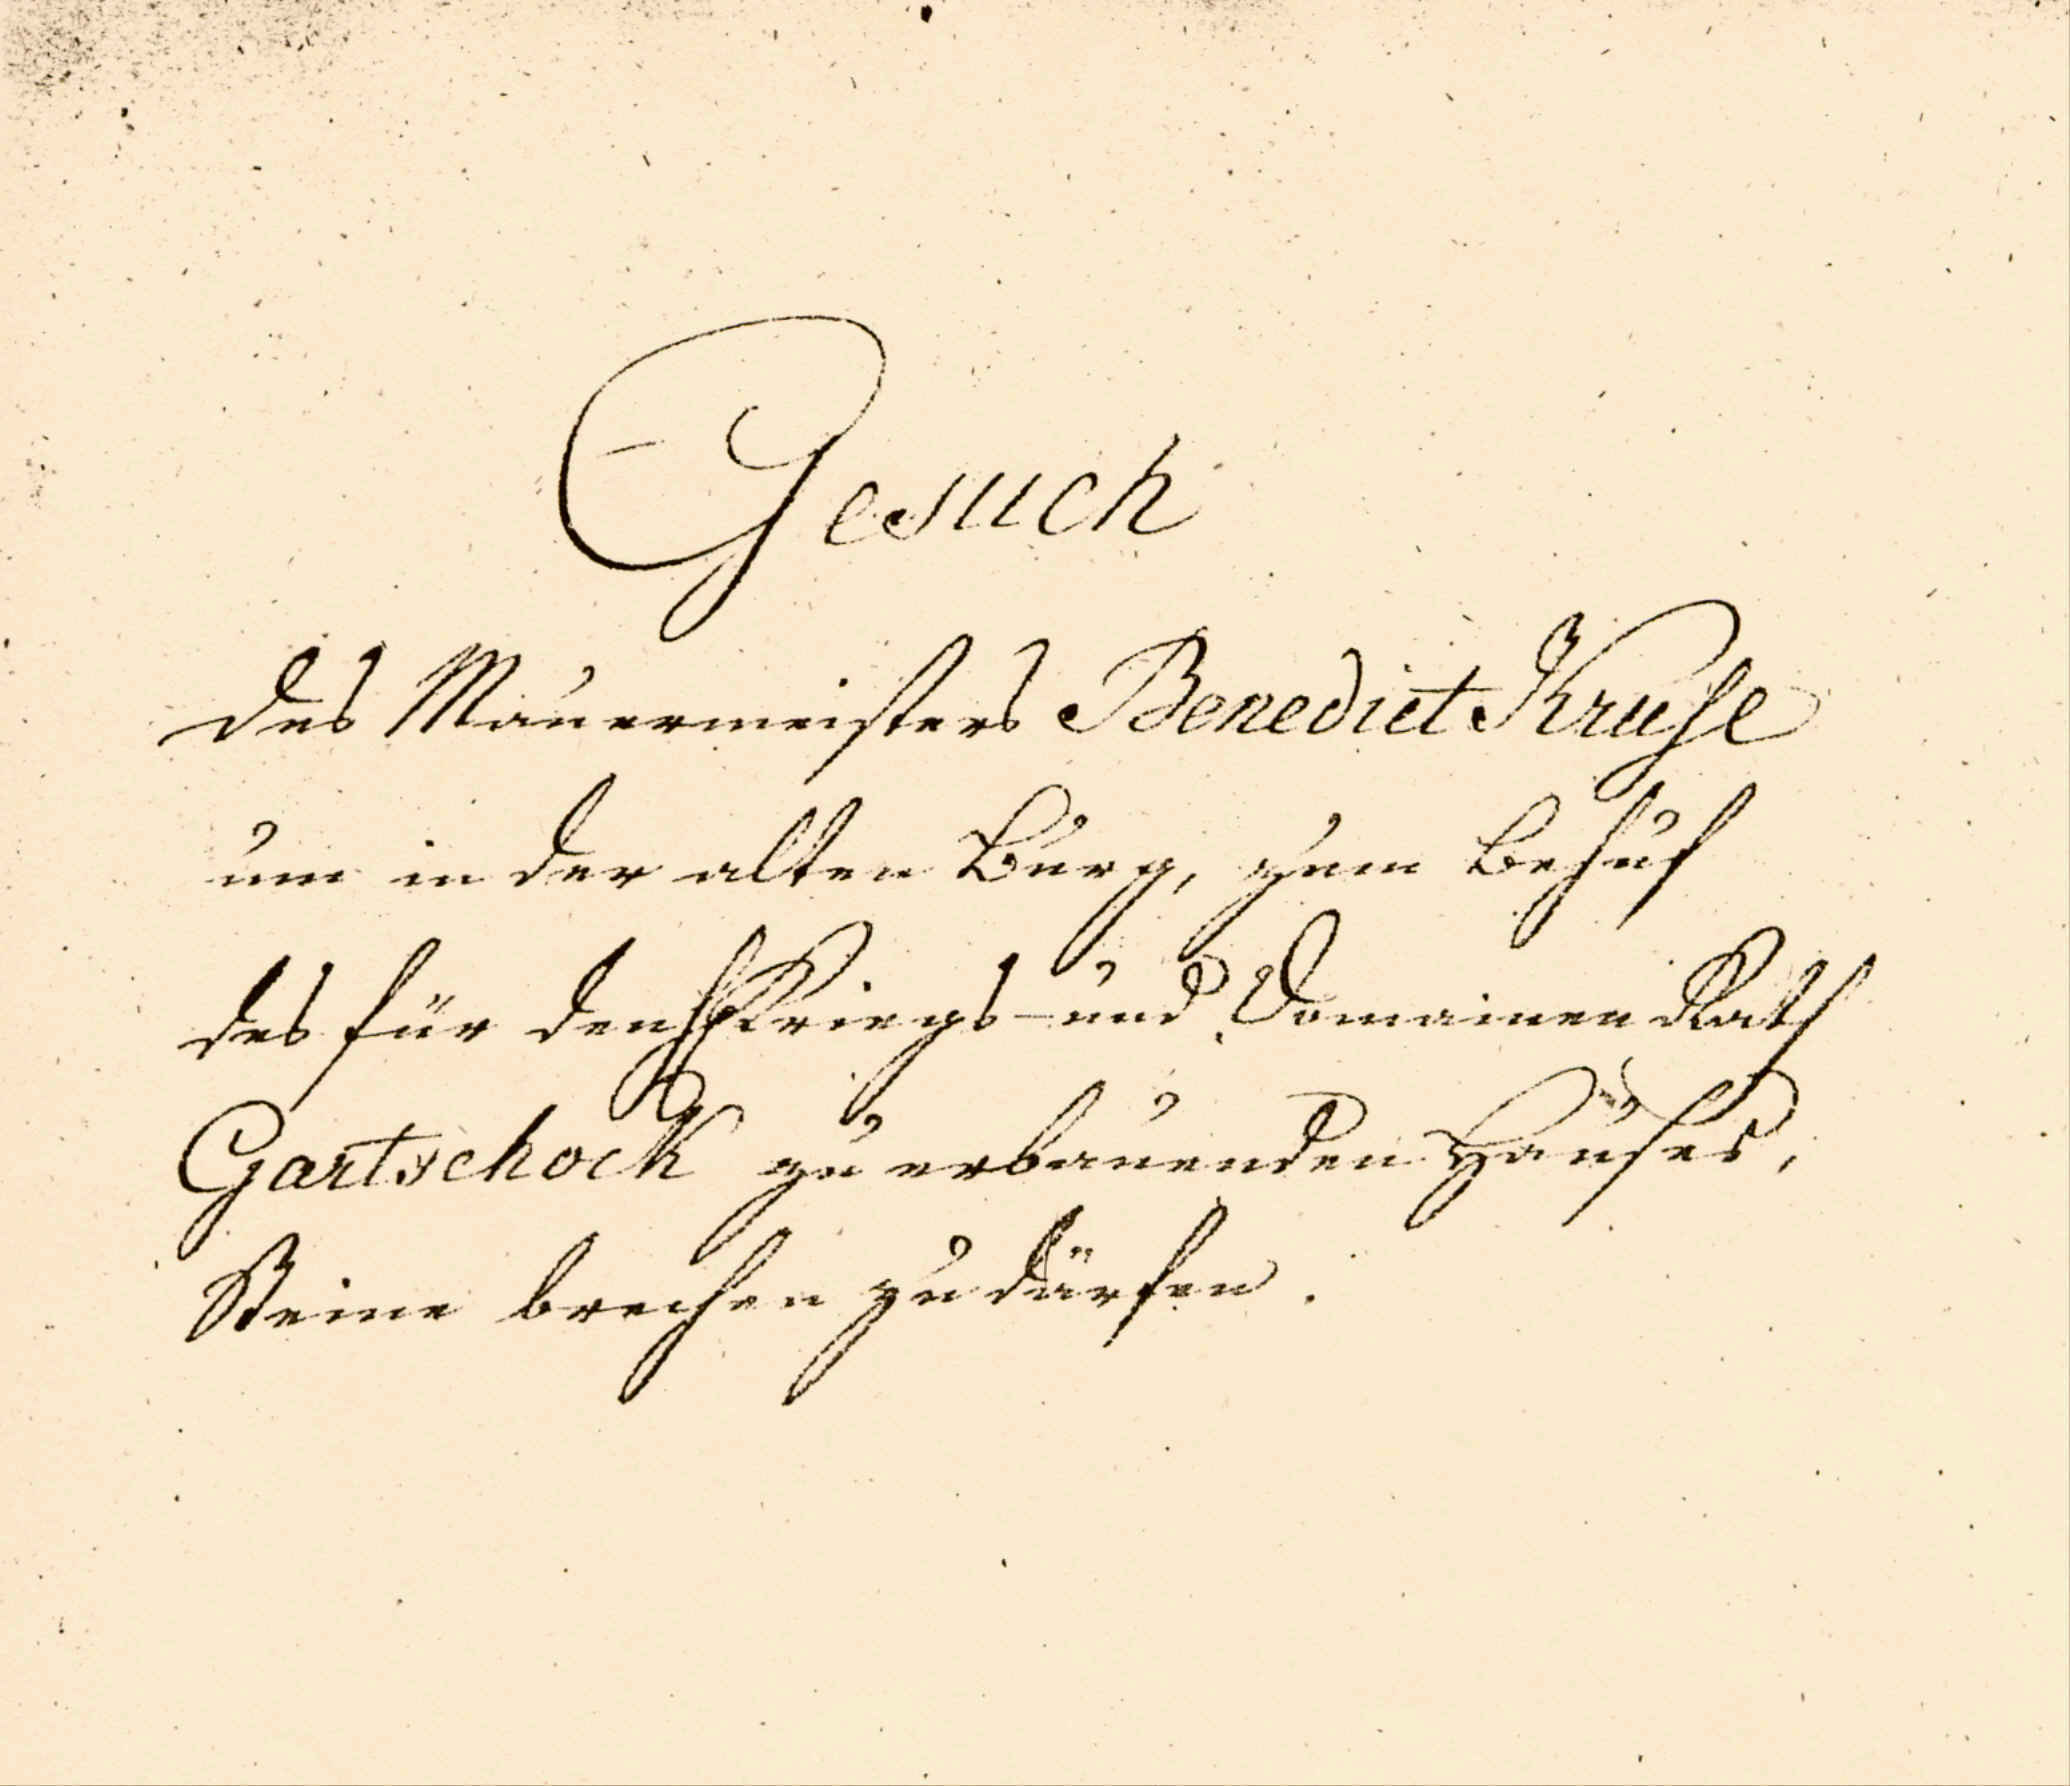 Gesuch
des Mauermeisters Benedict Kruse
um in der alten Burg, zum Behuf
des für den Kriegs- und Domainen Rath
Gartschock zu erbauenden Hauses,
Steine brechen zu dürfen.